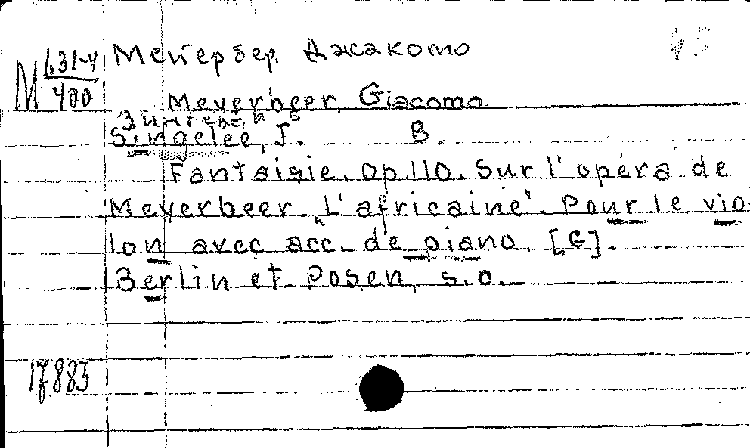 М 631-4
400
Мейербер Джакомо
Meyerbeer Giacomo
Singelee, J. B.
Fantaisie. Op. 110. Sur l'opéra de
Meyerbeer „L'africaine". Pour le vio-
lon avec acc. de piano. [G].
Berlin et Posen, s.a.
17883